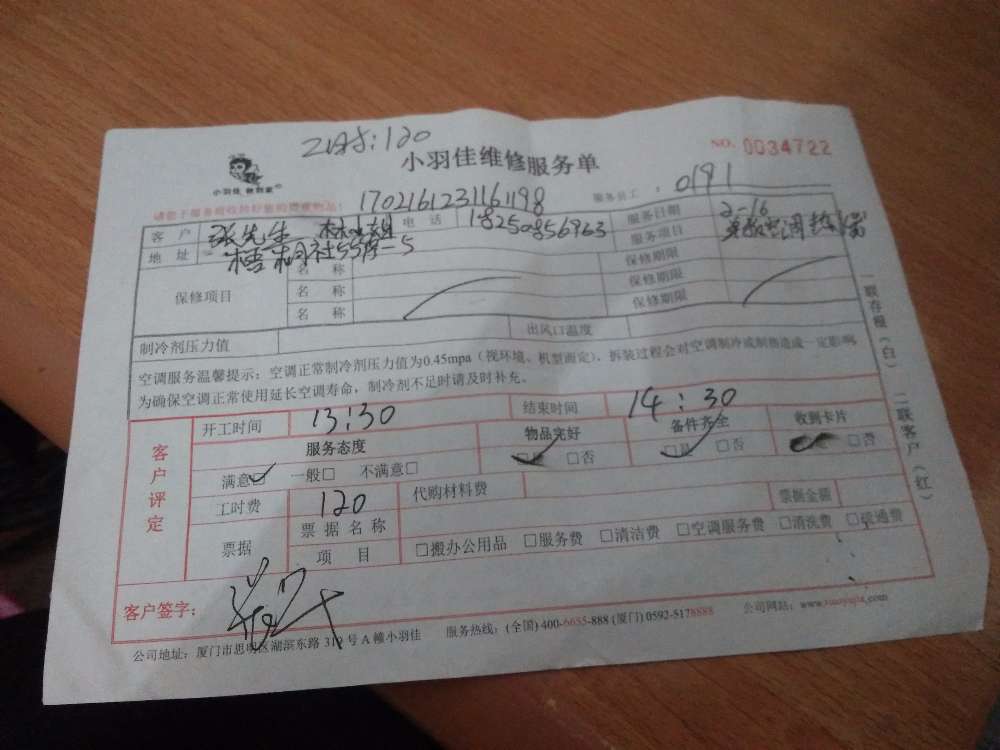 工时:120
小羽佳维修服务单
NO. 0034722
小羽佳 做到家
170216123116198
服务员工: 0191
客户 张先生 林小姐 电话 18250856963 服务日期 2-16
地址 梧桐社55号-5 服务项目
保修项目
名称 保修期限
名称 保修期限
名称 保修期限
制冷剂压力值 出风口温度
空调服务温馨提示:空调正常制冷剂压力值为0.45mpa(视环境、机型而定),拆装过程会对空调制冷或制热造成一定影响
为确保空调正常使用延长空调寿命,制冷剂不足时请及时补充。
一联存根(白) 二联客户(红)
客户评定
开工时间 13:30 结束时间 14:30
服务态度 物品完好 备件齐全 收到卡片
满意□ 一般□ 不满意□ □是 □否 □是 □否 □否
工时费 120 代购材料费 票据金额
票据 票据名称
项目 □搬办公用品 □服务费 □清洁费 □空调服务费 □清洗费 □疏通费
客户签字:
公司地址:厦门市思明区湖滨东路319号A幢小羽佳 服务热线:(全国)400-6655-888 (厦门) 0592-5178888 公司网站:www.xiaoyujia.com